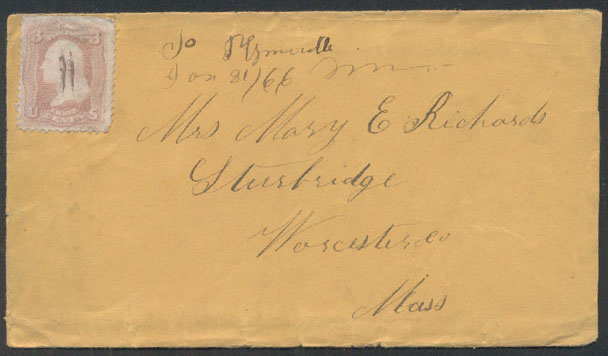 3 3
U S
Jan 31/66
Mrs Mary E Richards
Sturbridge
Worcester co
Mass